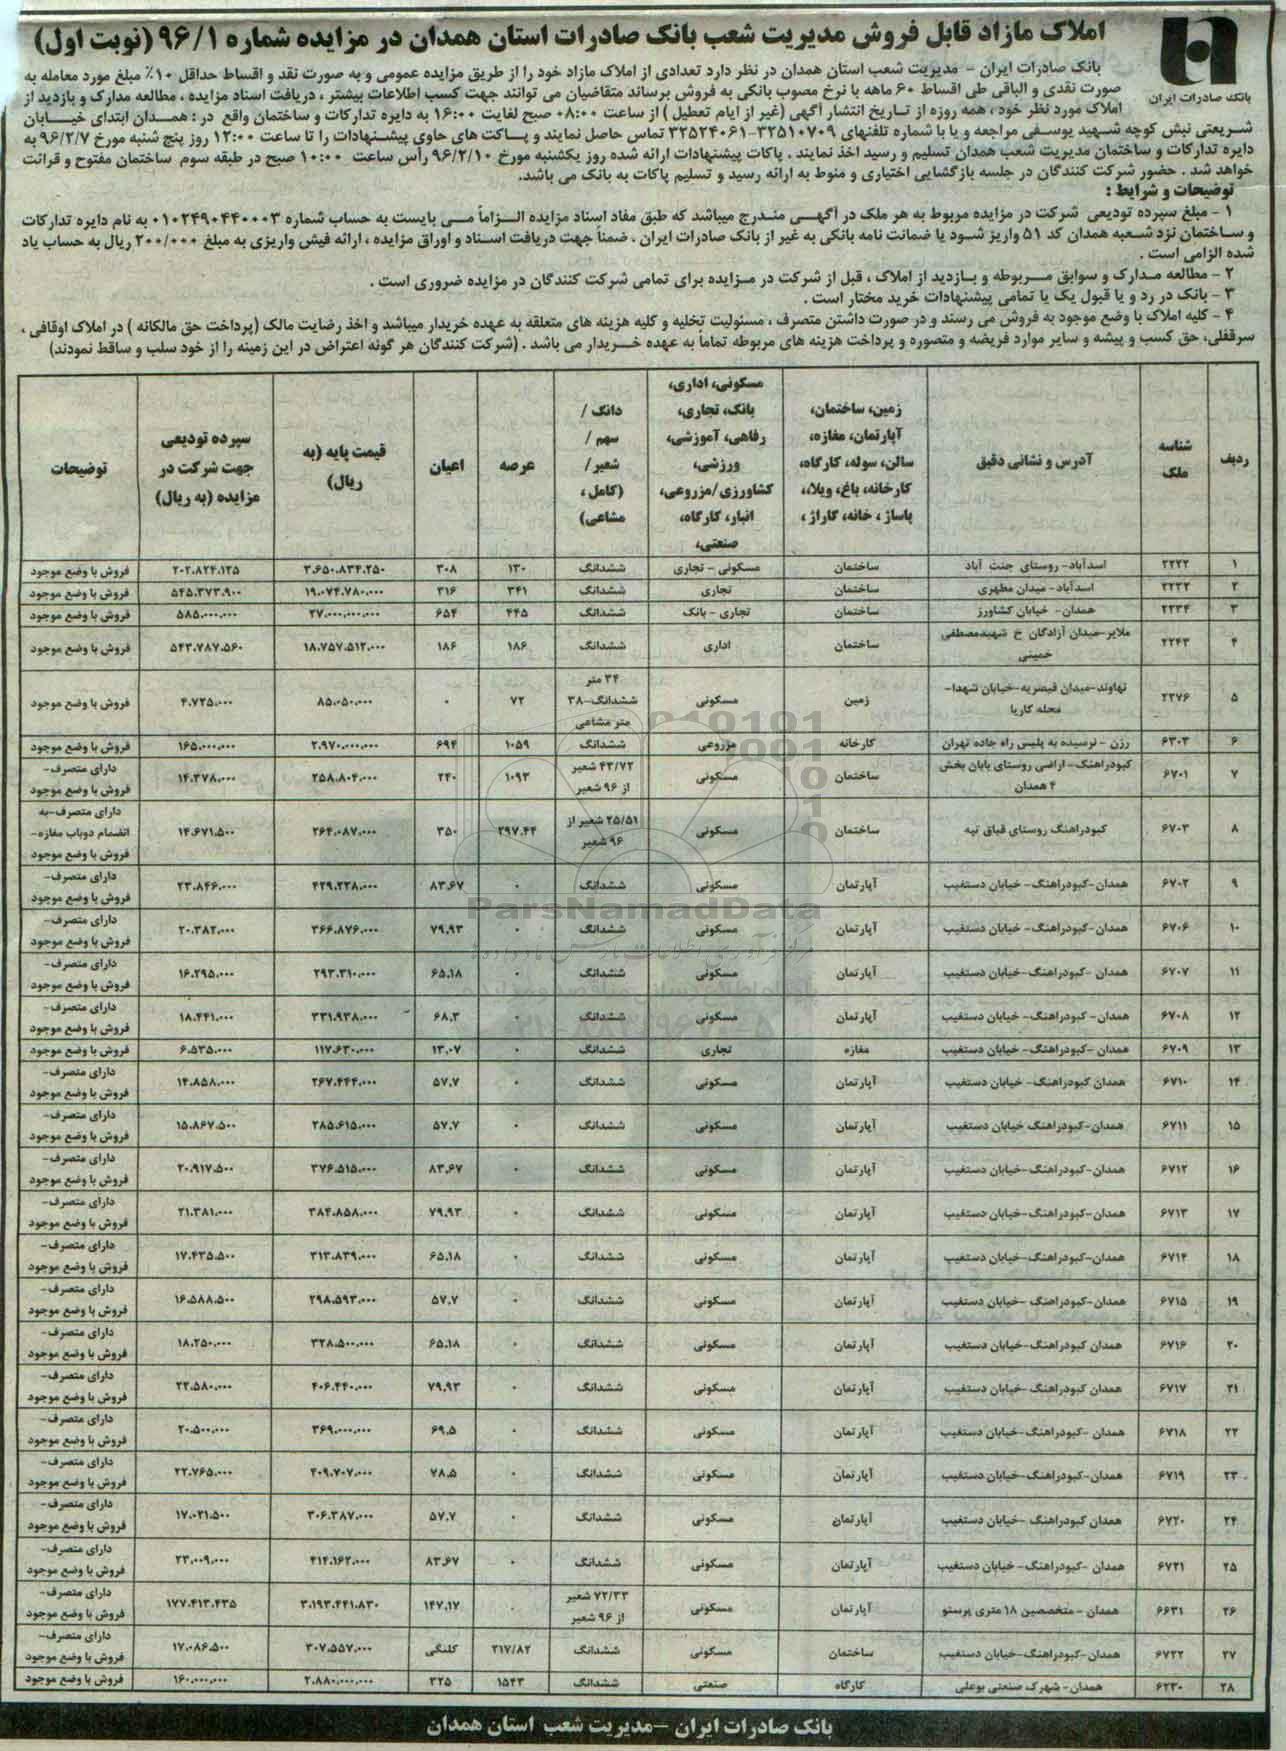 املاک مازاد قابل فروش مدیریت شعب بانک صادرات استان همدان در مزایده شماره ۹۶/۱ (نوبت اول)
بانک صادرات ایران
بانک صادرات ایران - مدیریت شعب استان همدان در نظر دارد تعدادی از املاک مازاد خود را از طریق مزایده عمومی و به صورت نقد و اقساط حداقل ۱۰٪ مبلغ مورد معامله به
صورت نقدی و الباقی طی اقساط ۶۰ ماهه با نرخ مصوب بانکی به فروش برساند متقاضیان می توانند جهت کسب اطلاعات بیشتر ، دریافت اسناد مزایده ، مطالعه مدارک و بازدید از
املاک مورد نظر خود ، همه روزه از تاریخ انتشار آگهی (غیر از ایام تعطیل ) از ساعت ۰۸:۰۰ صبح لغایت ۱۶:۰۰ به دایره تدارکات و ساختمان واقع در : همدان ابتدای خیابان
شریعتی نبش کوچه شهید یوسفی مراجعه و یا با شماره تلفنهای ۳۲۵۱۰۷۰۹-۳۲۵۲۴۰۶۱ تماس حاصل نمایند و پاکت های حاوی پیشنهادات را تا ساعت ۱۲:۰۰ روز پنج شنبه مورخ ۹۶/۲/۷ به
دایره تدارکات و ساختمان مدیریت شعب همدان تسلیم و رسید اخذ نمایند . پاکات پیشنهادات ارائه شده روز یکشنبه مورخ ۹۶/۲/۱۰ رأس ساعت ۱۰:۰۰ صبح در طبقه سوم ساختمان مفتوح و قرائت
خواهد شد . حضور شرکت کنندگان در جلسه بازگشایی اختیاری و منوط به ارائه رسید و تسلیم پاکات به بانک می باشد.
توضیحات و شرایط :
۱ - مبلغ سپرده تودیعی شرکت در مزایده مربوط به هر ملک در آگهی مندرج میباشد که طبق مفاد اسناد مزایده الزاماً می بایست به حساب شماره ۰۱۰۲۴۹۰۴۴۰۰۰۳ به نام دایره تدارکات
و ساختمان نزد شعبه همدان کد ۵۱ واریز شود یا ضمانت نامه بانکی به غیر از بانک صادرات ایران . ضمناً جهت دریافت اسناد و اوراق مزایده ، ارائه فیش واریزی به مبلغ ۲۰۰/۰۰۰ ریال به حساب یاد
شده الزامی است .
۲ - مطالعه مدارک و سوابق مربوطه و بازدید از املاک ، قبل از شرکت در مزایده برای تمامی شرکت کنندگان در مزایده ضروری است .
۳ - بانک در رد و یا قبول یک یا تمامی پیشنهادات خرید مختار است .
۴ - کلیه املاک با وضع موجود به فروش می رسند و در صورت داشتن متصرف ، مسئولیت تخلیه و کلیه هزینه های متعلقه به عهده خریدار میباشد و اخذ رضایت مالک (پرداخت حق مالکانه ) در املاک اوقافی ،
سرقفلی، حق کسب و پیشه و سایر موارد فریضه و متصوره و پرداخت هزینه های مربوطه تماماً به عهده خریدار می باشد . (شرکت کنندگان هر گونه اعتراض در این زمینه را از خود سلب و ساقط نمودند)
ردیف | شناسه ملک | آدرس و نشانی دقیق | زمین، ساختمان، آپارتمان، مغازه، سالن، سوله، کارگاه، کارخانه، باغ، ویلا، پاساژ ، خانه، گاراژ ، | مسکونی، اداری، بانک، تجاری، رفاهی، آموزشی، ورزشی، کشاورزی/مزروعی، انبار، کارگاه، صنعتی، | دانگ / سهم / شعیر / (کامل ، مشاعی) | عرصه | اعیان | قیمت پایه (به ریال) | سپرده تودیعی جهت شرکت در مزایده (به ریال) | توضیحات
۱ | ۲۲۲۲ | اسدآباد- روستای جنت آباد | ساختمان | مسکونی - تجاری | ششدانگ | ۱۳۰ | ۳۰۸ | ۳،۶۵۰،۸۳۴،۲۵۰ | ۲۰۲،۸۲۴،۱۲۵ | فروش با وضع موجود
۲ | ۲۲۳۲ | اسدآباد- میدان مطهری | ساختمان | تجاری | ششدانگ | ۳۴۱ | ۳۱۶ | ۱۹،۰۷۴،۷۸۰،۰۰۰ | ۵۴۵،۳۷۳،۹۰۰ | فروش با وضع موجود
۳ | ۲۲۳۴ | همدان- خیابان کشاورز | ساختمان | تجاری - بانک | ششدانگ | ۴۴۵ | ۶۵۴ | ۲۷،۰۰۰،۰۰۰،۰۰۰ | ۵۸۵،۰۰۰،۰۰۰ | فروش با وضع موجود
۴ | ۲۲۴۳ | ملایر-میدان آزادگان خ شهیدمصطفی خمینی | ساختمان | اداری | ششدانگ | ۱۸۶ | ۱۸۶ | ۱۸،۷۵۷،۵۱۲،۰۰۰ | ۵۴۳،۷۸۷،۵۶۰ | فروش با وضع موجود
۵ | ۲۲۷۶ | نهاوند-میدان قیصریه-خیابان شهدا-محله کاربا | زمین | مسکونی | ۳۴ متر ششدانگ-۳۸ متر مشاعی | ۷۲ | ۰ | ۸۵،۰۵۰،۰۰۰ | ۴،۷۲۵،۰۰۰ | فروش با وضع موجود
۶ | ۶۳۰۳ | رزن - نرسیده به پلیس راه جاده تهران | کارخانه | مزروعی | ششدانگ | ۱۰۵۹ | ۶۹۴ | ۲،۹۷۰،۰۰۰،۰۰۰ | ۱۶۵،۰۰۰،۰۰۰ | فروش با وضع موجود
۷ | ۶۷۰۱ | کبودراهنگ-اراضی روستای بابان بخش ۴ همدان | ساختمان | مسکونی | ۴۳/۷۲ شعیر از ۹۶ شعیر | ۱۰۹۳ | ۲۴۰ | ۲۵۸،۸۰۴،۰۰۰ | ۱۴،۳۷۸،۰۰۰ | دارای متصرف- فروش با وضع موجود
۸ | ۶۷۰۳ | کبودراهنگ روستای قباق تپه | ساختمان | مسکونی | ۲۵/۵۱ شعیر از ۹۶ شعیر | ۲۹۷،۴۴ | ۳۵۰ | ۲۶۴،۰۸۷،۰۰۰ | ۱۴،۶۷۱،۵۰۰ | دارای متصرف-به انضمام دوباب مغازه- فروش با وضع موجود
۹ | ۶۷۰۲ | همدان-کبودراهنگ- خیابان دستغیب | آپارتمان | مسکونی | ششدانگ | ۰ | ۸۳،۶۷ | ۴۲۹،۲۲۸،۰۰۰ | ۲۳،۸۴۶،۰۰۰ | دارای متصرف- فروش با وضع موجود
۱۰ | ۶۷۰۶ | همدان-کبودراهنگ- خیابان دستغیب | آپارتمان | مسکونی | ششدانگ | ۰ | ۷۹،۹۳ | ۳۶۶،۸۷۶،۰۰۰ | ۲۰،۳۸۲،۰۰۰ | دارای متصرف- فروش با وضع موجود
۱۱ | ۶۷۰۷ | همدان -کبودراهنگ-خیابان دستغیب | آپارتمان | مسکونی | ششدانگ | ۰ | ۶۵،۱۸ | ۲۹۳،۳۱۰،۰۰۰ | ۱۶،۲۹۵،۰۰۰ | دارای متصرف- فروش با وضع موجود
۱۲ | ۶۷۰۸ | همدان- کبودراهنگ- خیابان دستغیب | آپارتمان | مسکونی | ششدانگ | ۰ | ۶۸،۳ | ۳۳۱،۹۳۸،۰۰۰ | ۱۸،۴۴۱،۰۰۰ | دارای متصرف- فروش با وضع موجود
۱۳ | ۶۷۰۹ | همدان -کبودراهنگ- خیابان دستغیب | مغازه | تجاری | ششدانگ | ۰ | ۱۳،۰۷ | ۱۱۷،۶۳۰،۰۰۰ | ۶،۵۳۵،۰۰۰ | فروش با وضع موجود
۱۴ | ۶۷۱۰ | همدان کبودراهنگ- خیابان دستغیب | آپارتمان | مسکونی | ششدانگ | ۰ | ۵۷،۷ | ۲۶۷،۴۴۴،۰۰۰ | ۱۴،۸۵۸،۰۰۰ | دارای متصرف- فروش با وضع موجود
۱۵ | ۶۷۱۱ | همدان-کبودراهنگ خیابان دستغیب | آپارتمان | مسکونی | ششدانگ | ۰ | ۵۷،۷ | ۲۸۵،۶۱۵،۰۰۰ | ۱۵،۸۶۷،۵۰۰ | دارای متصرف- فروش با وضع موجود
۱۶ | ۶۷۱۲ | همدان-کبودراهنگ-خیابان دستغیب | آپارتمان | مسکونی | ششدانگ | ۰ | ۸۳،۶۷ | ۳۷۶،۵۱۵،۰۰۰ | ۲۰،۹۱۷،۵۰۰ | دارای متصرف- فروش با وضع موجود
۱۷ | ۶۷۱۳ | همدان-کبودراهنگ-خیابان دستغیب | آپارتمان | مسکونی | ششدانگ | ۰ | ۷۹،۹۳ | ۳۸۴،۸۵۸،۰۰۰ | ۲۱،۳۸۱،۰۰۰ | دارای متصرف- فروش با وضع موجود
۱۸ | ۶۷۱۴ | همدان-کبودراهنگ-خیابان دستغیب | آپارتمان | مسکونی | ششدانگ | ۰ | ۶۵،۱۸ | ۳۱۳،۸۳۹،۰۰۰ | ۱۷،۴۳۵،۵۰۰ | دارای متصرف- فروش با وضع موجود
۱۹ | ۶۷۱۵ | همدان-کبودراهنگ-خیابان دستغیب | آپارتمان | مسکونی | ششدانگ | ۰ | ۵۷،۷ | ۲۹۸،۵۹۳،۰۰۰ | ۱۶،۵۸۸،۵۰۰ | دارای متصرف- فروش با وضع موجود
۲۰ | ۶۷۱۶ | همدان کبودراهنگ-خیابان دستغیب | آپارتمان | مسکونی | ششدانگ | ۰ | ۶۵،۱۸ | ۳۲۸،۵۰۰،۰۰۰ | ۱۸،۲۵۰،۰۰۰ | دارای متصرف- فروش با وضع موجود
۲۱ | ۶۷۱۷ | همدان کبودراهنگ -خیابان دستغیب | آپارتمان | مسکونی | ششدانگ | ۰ | ۷۹،۹۳ | ۴۰۶،۴۴۰،۰۰۰ | ۲۲،۵۸۰،۰۰۰ | دارای متصرف- فروش با وضع موجود
۲۲ | ۶۷۱۸ | همدان -کبودراهنگ-خیابان دستغیب | آپارتمان | مسکونی | ششدانگ | ۰ | ۶۹،۵ | ۳۶۹،۰۰۰،۰۰۰ | ۲۰،۵۰۰،۰۰۰ | دارای متصرف- فروش با وضع موجود
۲۳ | ۶۷۱۹ | همدان-کبودراهنگ-خیابان دستغیب | آپارتمان | مسکونی | ششدانگ | ۰ | ۷۸،۵ | ۴۰۹،۷۰۷،۰۰۰ | ۲۲،۷۶۵،۰۰۰ | دارای متصرف- فروش با وضع موجود
۲۴ | ۶۷۲۰ | همدان کبودراهنگ -خیابان دستغیب | آپارتمان | مسکونی | ششدانگ | ۰ | ۵۷،۷ | ۳۰۶،۳۸۷،۰۰۰ | ۱۷،۰۲۱،۵۰۰ | دارای متصرف- فروش با وضع موجود
۲۵ | ۶۷۲۱ | همدان -کبودراهنگ- خیابان دستغیب | آپارتمان | مسکونی | ششدانگ | ۰ | ۸۳،۶۷ | ۴۱۴،۱۶۲،۰۰۰ | ۲۳،۰۰۹،۰۰۰ | دارای متصرف- فروش با وضع موجود
۲۶ | ۶۶۳۱ | همدان - متخصصین ۱۸ متری پرستو | آپارتمان | مسکونی | ۷۲/۳۳ شعیر از ۹۶ شعیر | ۰ | ۱۴۷،۱۷ | ۳،۱۹۳،۴۴۱،۸۳۰ | ۱۷۷،۴۱۳،۴۳۵ | دارای متصرف- فروش با وضع موجود
۲۷ | ۶۷۲۲ | همدان -کبودراهنگ-خیابان دستغیب | ساختمان | مسکونی | ششدانگ | ۲۱۷/۸۲ | کلنگی | ۳۰۷،۵۵۷،۰۰۰ | ۱۷،۰۸۶،۵۰۰ | دارای متصرف- فروش با وضع موجود
۲۸ | ۶۲۳۰ | همدان- شهرک صنعتی بوعلی | کارگاه | صنعتی | ششدانگ | ۱۵۴۳ | ۳۲۵ | ۲،۸۸۰،۰۰۰،۰۰۰ | ۱۶۰،۰۰۰،۰۰۰ | فروش با وضع موجود
ParsNamadData
بانک صادرات ایران -مدیریت شعب استان همدان